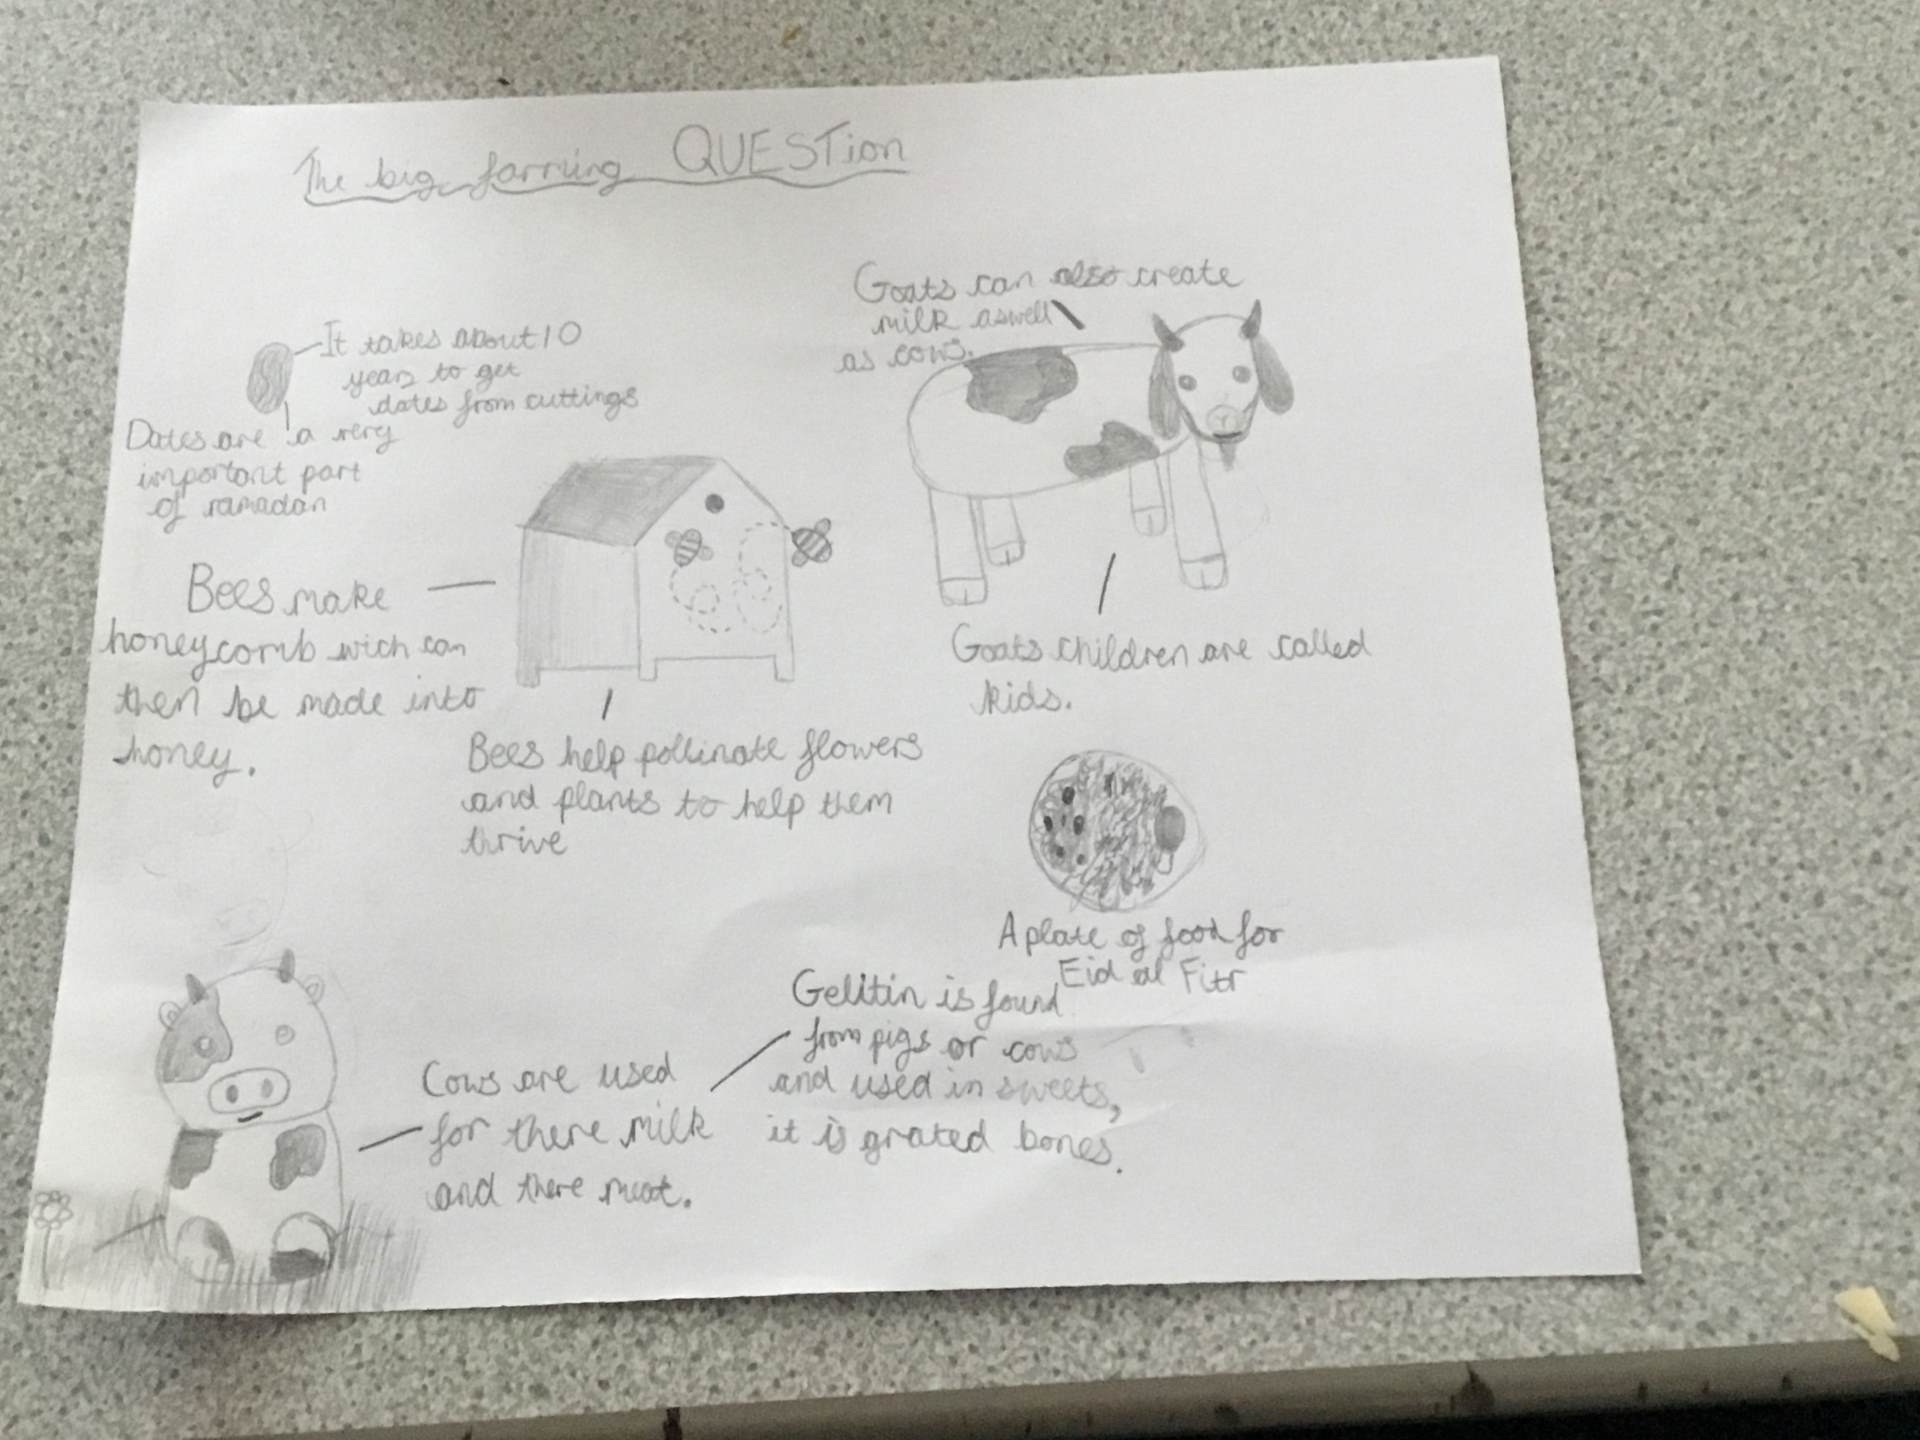 The big farming QUESTion
It takes about 10
years to get
dates from cuttings
Dates are a very
important part
of ramadan
Goats can also create
milk aswell
as cows.
Bees make
honeycomb wich can
then be made into
honey.
Bees help pollinate flowers
and plants to help them
thrive
Goats children are called
kids.
A plate of food for
Eid al Fitr
Gelitin is found
from pigs or cows
and used in sweets,
it is grated bones.
Cows are used
for there milk
and there meat.